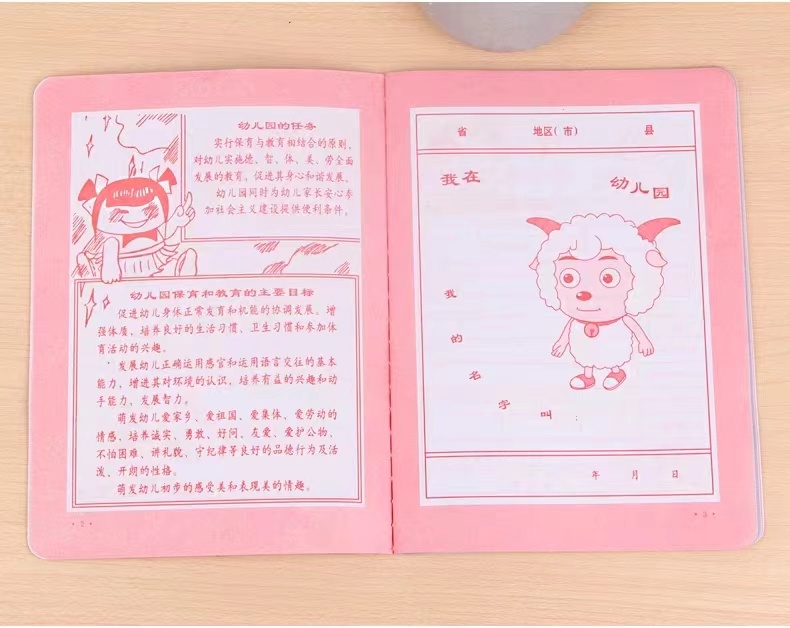 幼儿园的任务
实行保育与教育相结合的原则,
对幼儿实施德、智、体、美、劳全面
发展的教育，促进其身心和谐发展。
幼儿园同时为幼儿家长安心参
加社会主义建设提供便利条件。
幼儿园保育和教育的主要目标
促进幼儿身体正常发育和机能的协调发展，增
强体质，培养良好的生活习惯、卫生习惯和参加体
育活动的兴趣。
发展幼儿正确运用感官和运用语言交往的基本
能力，增进其对环境的认识，培养有益的兴趣和动
手能力，发展智力。
萌发幼儿爱家乡、爱祖国、爱集体、爱劳动的
情感，培养诚实、勇敢、好问、友爱、爱护公物、
不怕困难、讲礼貌、守纪律等良好的品德行为及活
泼、开朗的性格。
萌发幼儿初步的感受美和表现美的情趣。
• 2 •
省 地区(市) 县
我在 幼儿园
我的名字叫：
年 月 日
• 3 •